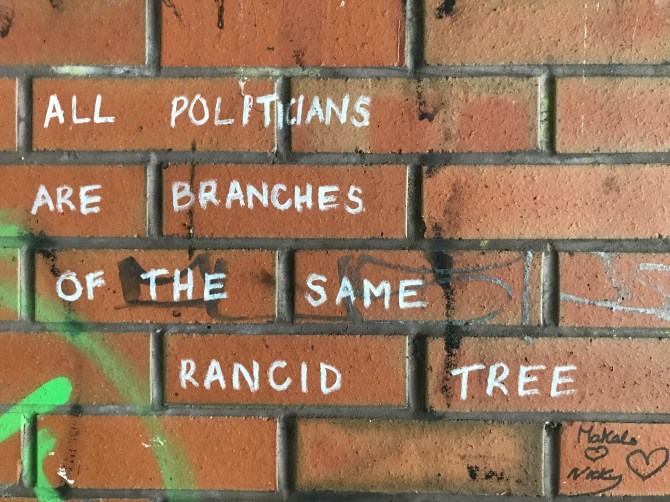 ALL POLITICIANS
ARE BRANCHES
OF THE SAME
RANCID TREE
Nicky